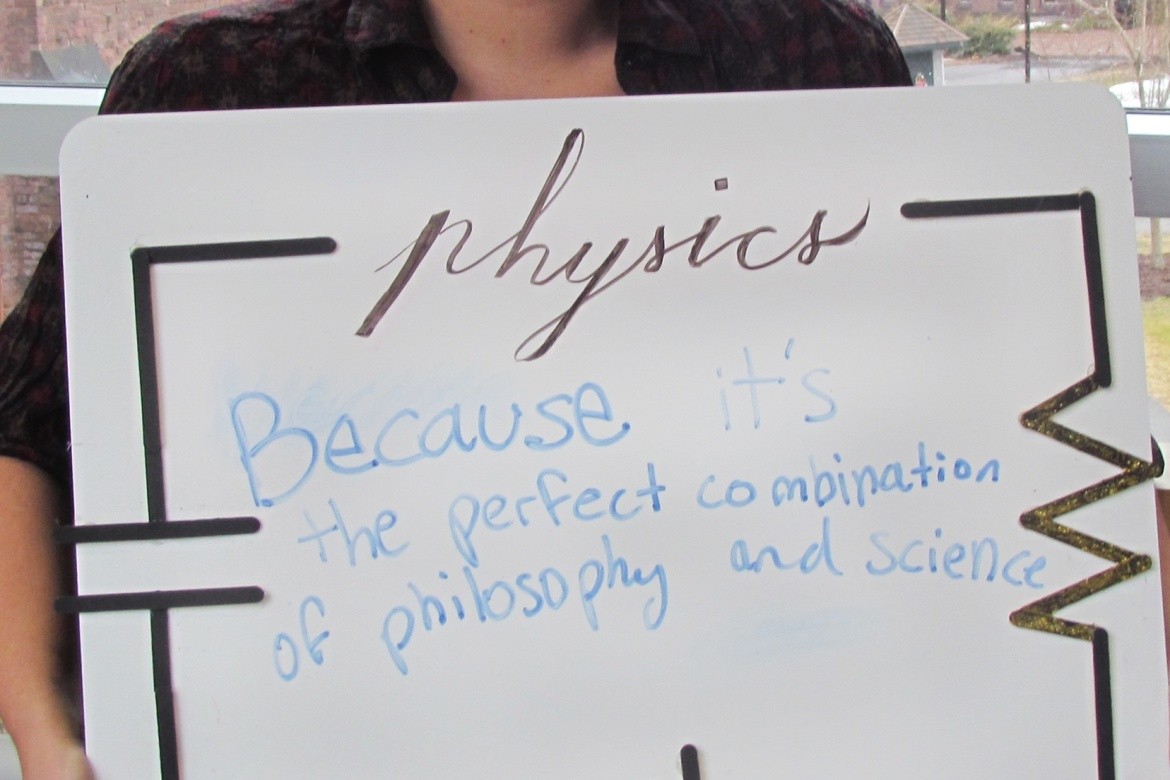 physics
Because it's
the perfect combination
of philosophy and science